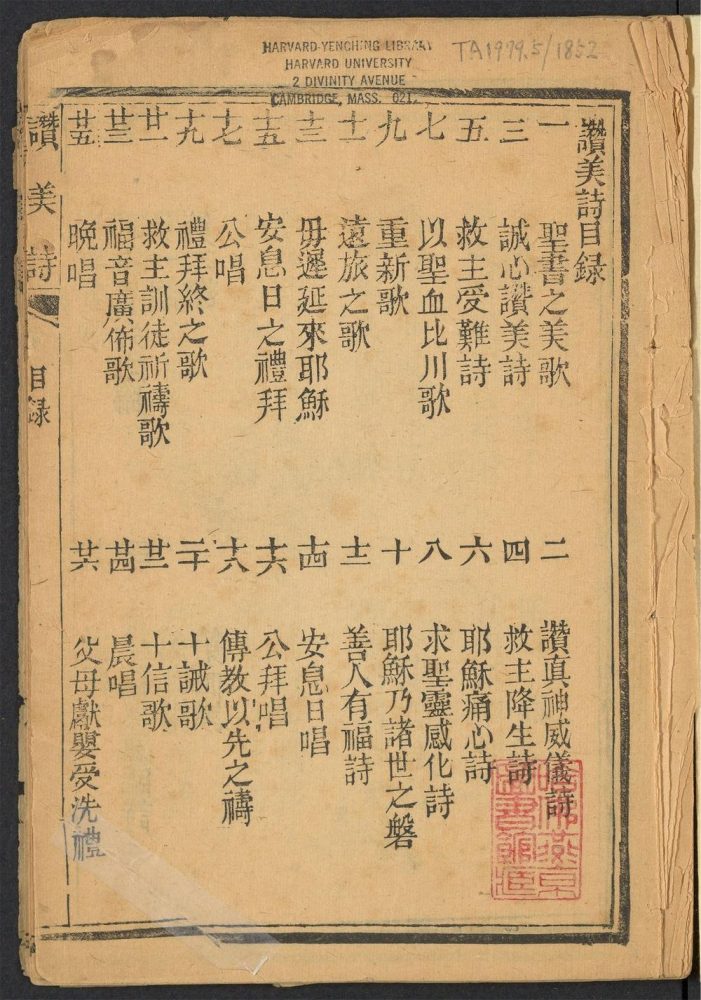 HARVARD-YENCHING LIBRARY
HARVARD UNIVERSITY
2 DIVINITY AVENUE
CAMBRIDGE, MASS. 021
TA1979.5/1852
讚美詩目録
一 聖書之美歌 二 讚真神威儀詩
三 誠心讚美詩 四 救主降生詩
五 救主受難詩 六 耶穌痛心詩
七 以聖血比川歌 八 求聖靈感化詩
九 重新歌 十 耶穌乃諸世之磐
十一 遠旅之歌 十二 善人有福詩
十三 毋遲延來耶穌 十四 安息日唱
十五 安息日之禮拜 十六 公拜唱
十七 公唱 十八 傳教以先之禱
十九 禮拜終之歌 二十 十誡歌
廿一 救主訓徒祈禱歌 廿二 十信歌
廿三 福音廣佈歌 廿四 晨唱
廿五 晚唱 廿六 父母獻嬰受洗禮
讚美詩 目録
哈佛燕京圖書館藏